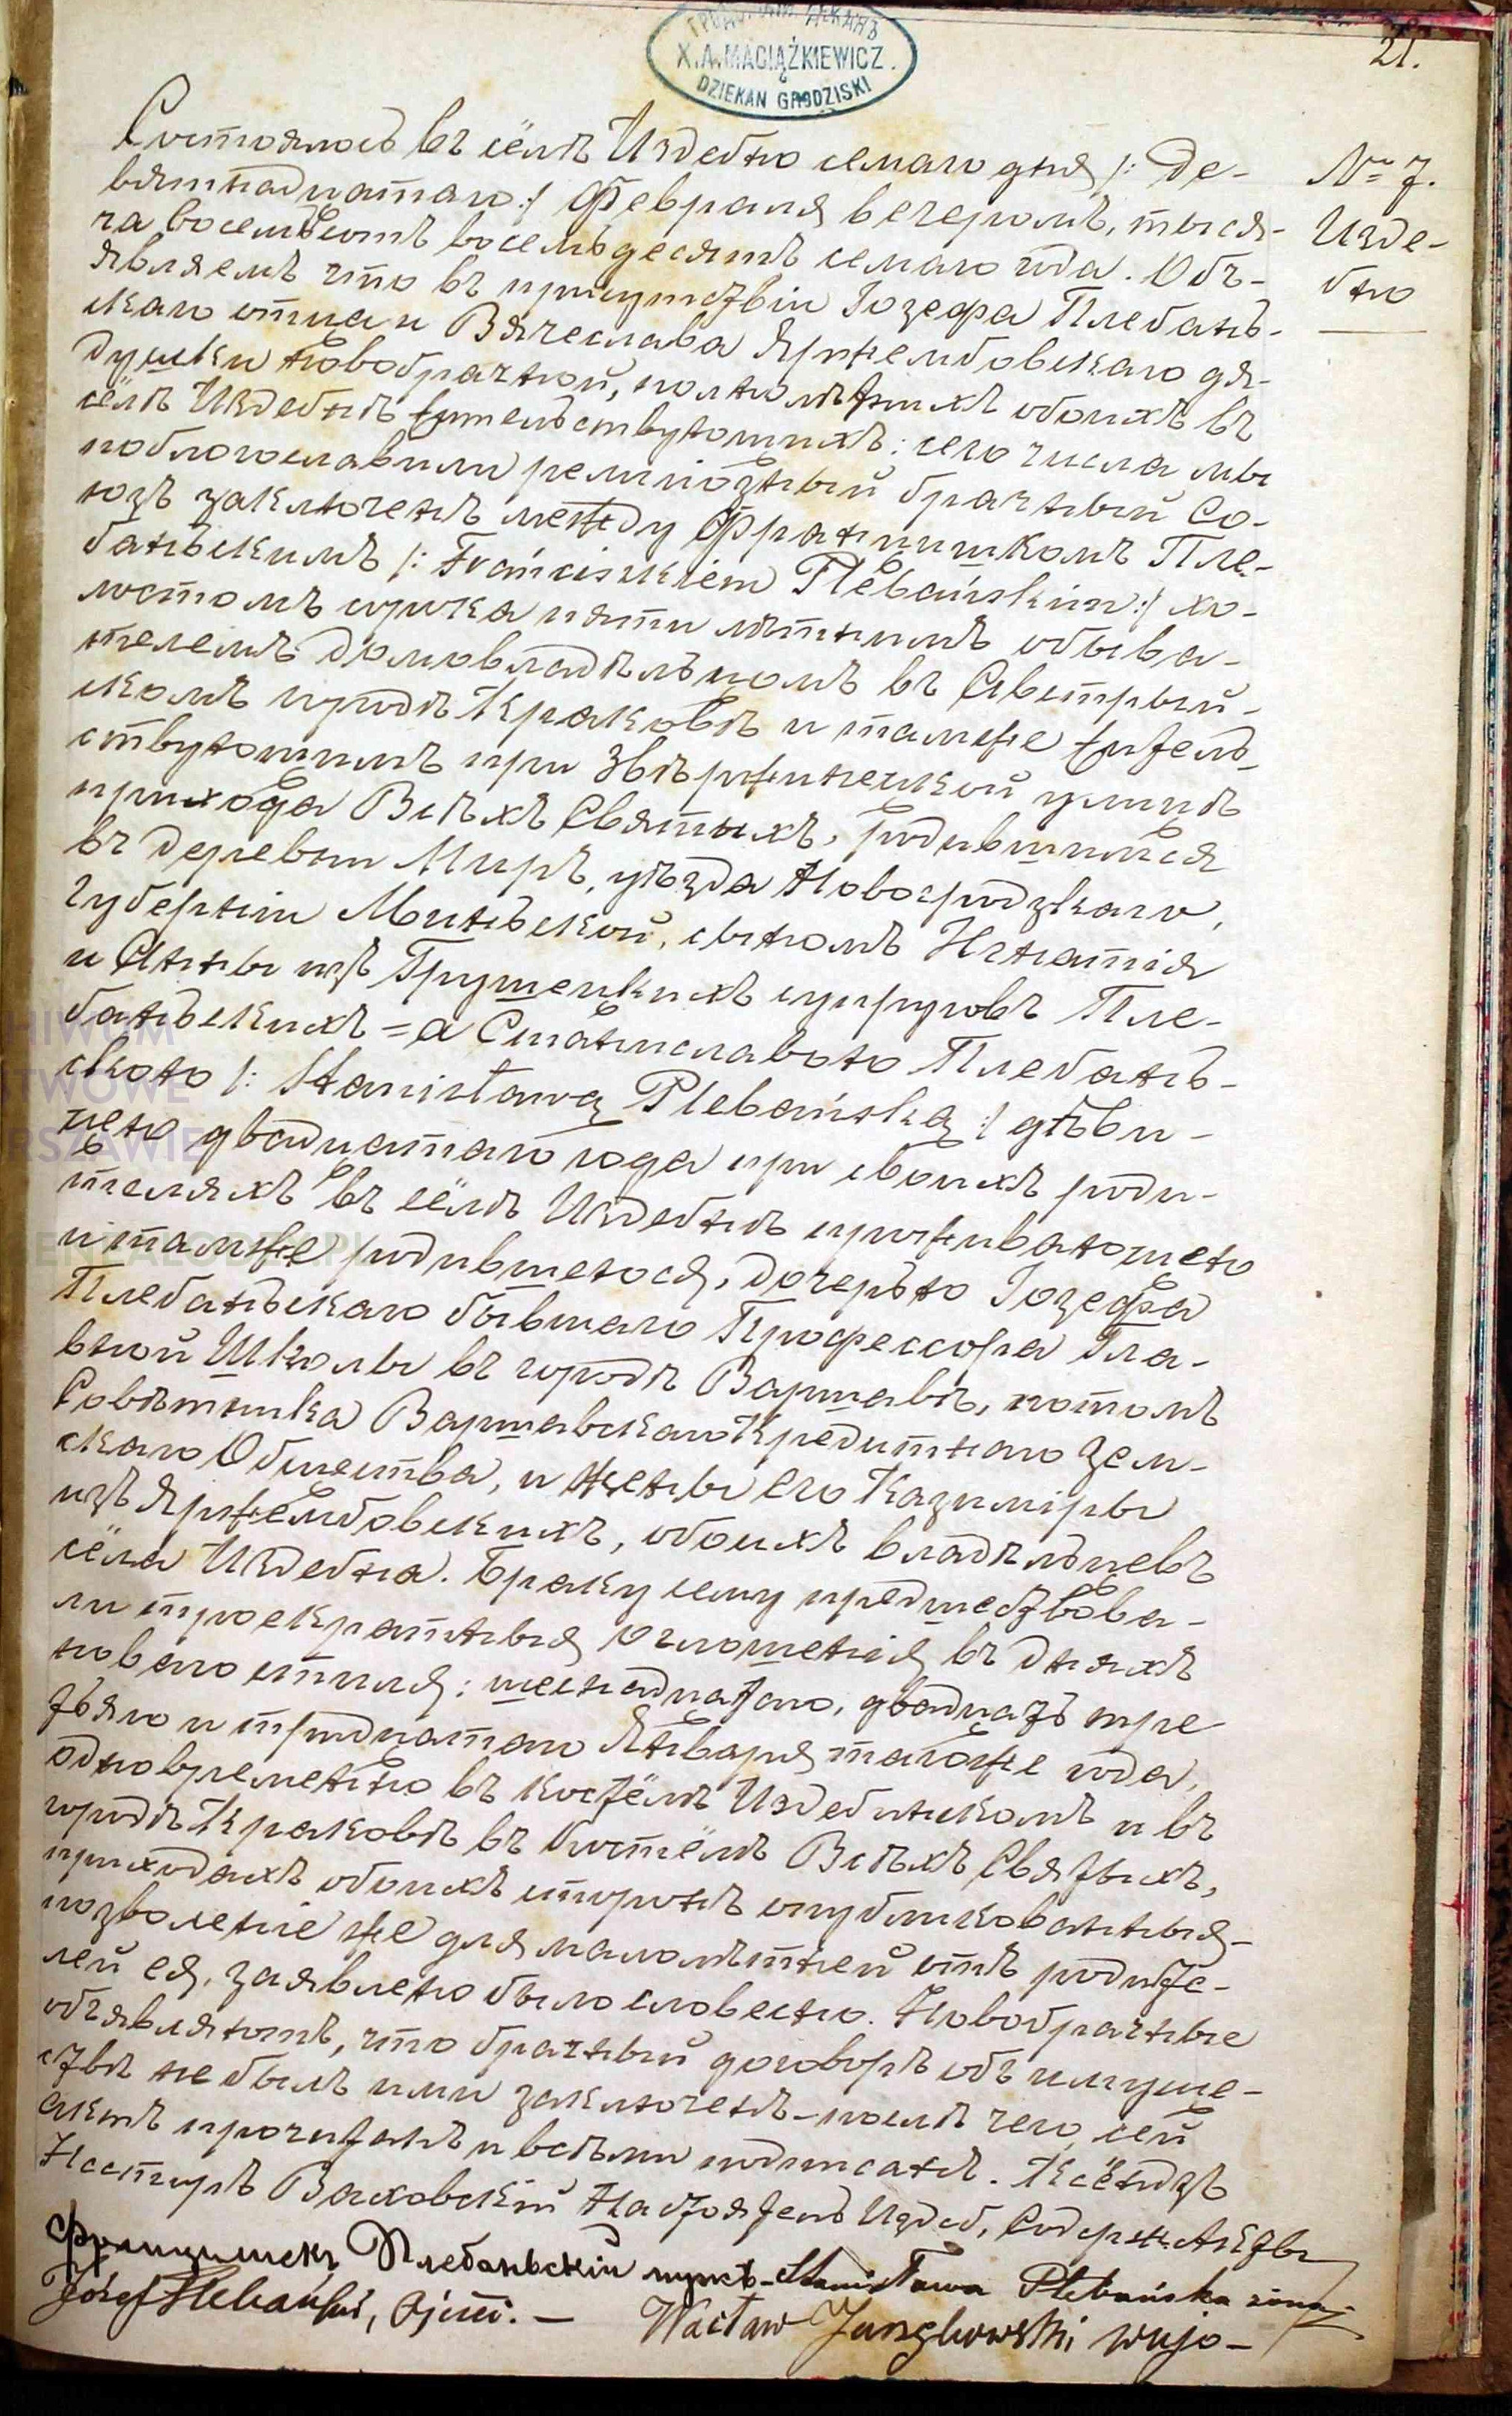 ГРОДЗИСКІЙ ДЕКАНЪ
Х.A.MACIĄŻKIEWICZ.
DZIEKAN GRODZISKI
21.
№ 7.
Изде-
бно
Состоялось въ сёлѣ Издебно семаго дня /: де-
вятнадцатаго :/ Февраля вечеромъ, тыся-
ча восемьсотъ восемьдесятъ семаго года. Объ-
являемъ что въ присутствіи Іозефа Плебань-
скаго отца и Вячеслава Яржембовскаго дя-
душки новобрачной, полнолѣтнихъ обоихъ въ
сёлѣ Издебнѣ жительствующихъ; сего числа мы
поблогославили религіозный брачный со-
юзъ заключенъ между Францишкомъ Пле-
баньскимъ /: Franciszkiem Plebańskim :/ хо-
лостомъ сорока пяти лѣтнимъ обыва-
телемъ домовладѣльцомъ въ Австрый-
скомъ городѣ Краковѣ и тамже житель-
ствующимъ при Звѣржинецкой улицѣ
прихода Всѣхъ Святыхъ, родившимся
въ деревни Миръ, уѣзда Новогродзкаго,
Губерніи Миньской, сыномъ Игнатія
и Анны изъ Грушецкихъ супруговъ Пле-
баньскихъ = а Станиславою Плебань-
скою /: Stanisławą Plebańską :/ дѣви-
цею двадцатаго года при своихъ роди-
теляхъ въ сёлѣ Издебнѣ проживающею
и тамже родившеюся, дочерью Іозефа
Плебаньскаго бывшаго Профессора Гла-
вной Школы въ городѣ Варшавѣ, потомъ
Совѣтника Варшавскаго Кредитнаго Зем-
скаго Общества, и жены его Казиміры
изъ Яржембовскихъ, обоихъ владѣльцевъ
сёла Издебна. Браку сему предшествова-
ли троекратныя оглошенія въ дняхъ
новаго стиля: шеснадцатаго, двадцать тре-
тьяго и тридцатаго Января тагоже года,
одновременно въ костёлѣ Издебинскомъ и въ
городѣ Краковѣ въ костёлѣ Всѣхъ Святыхъ,
приходахъ обоихъ сторонъ опубликованныя-
позволеніе же для малолѣтней отъ родите-
лей ея, заявлено было словесно. Новобрачные
объявляютъ, что брачный договоръ объ имуще-
ствѣ не былъ ими заключенъ - послѣ чего сей
актъ прочитанъ и всѣми подписанъ. Ксёндзъ
Несторъ Ваховскій Настоятель Издеб, Содерж. Акты
Францишекъ Плебаньскій мужъ - Stanisława Plebańska żona
Józef Plebański, Ojciec. - Wacław Jarzębowski wujo-